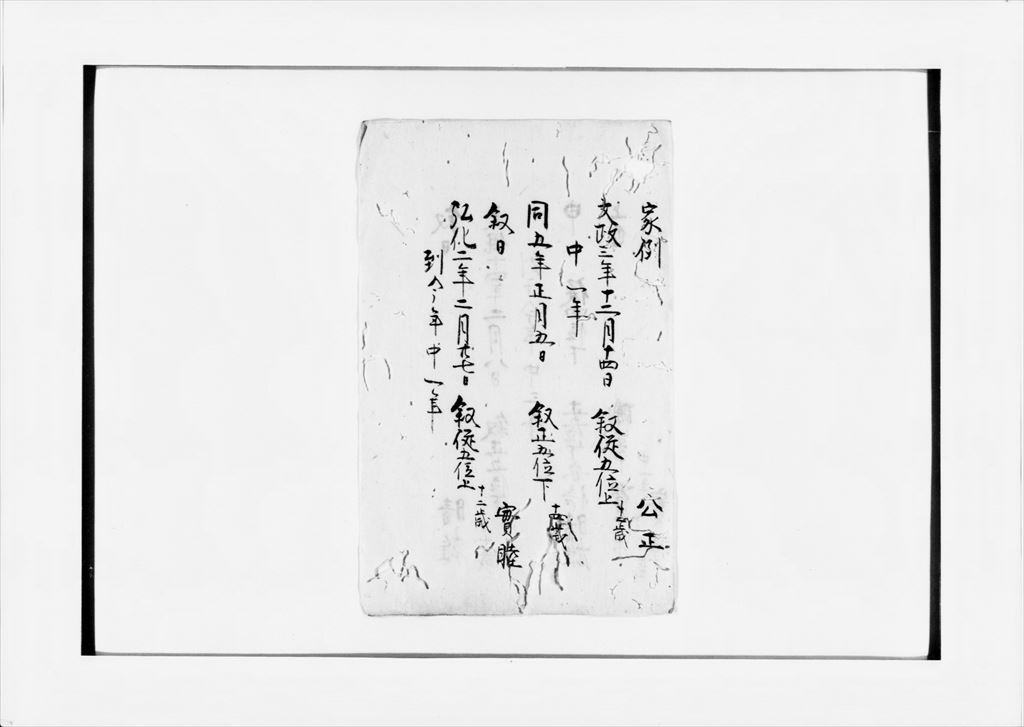 家例　公正
文政三年十二月十四日　叙従五位上　十三歳
中一年
同五年正月五日　叙正五位下　十五歳
叙日　實睦
弘化二年二月廿七日　叙従五位上　十二歳
到今年中一年